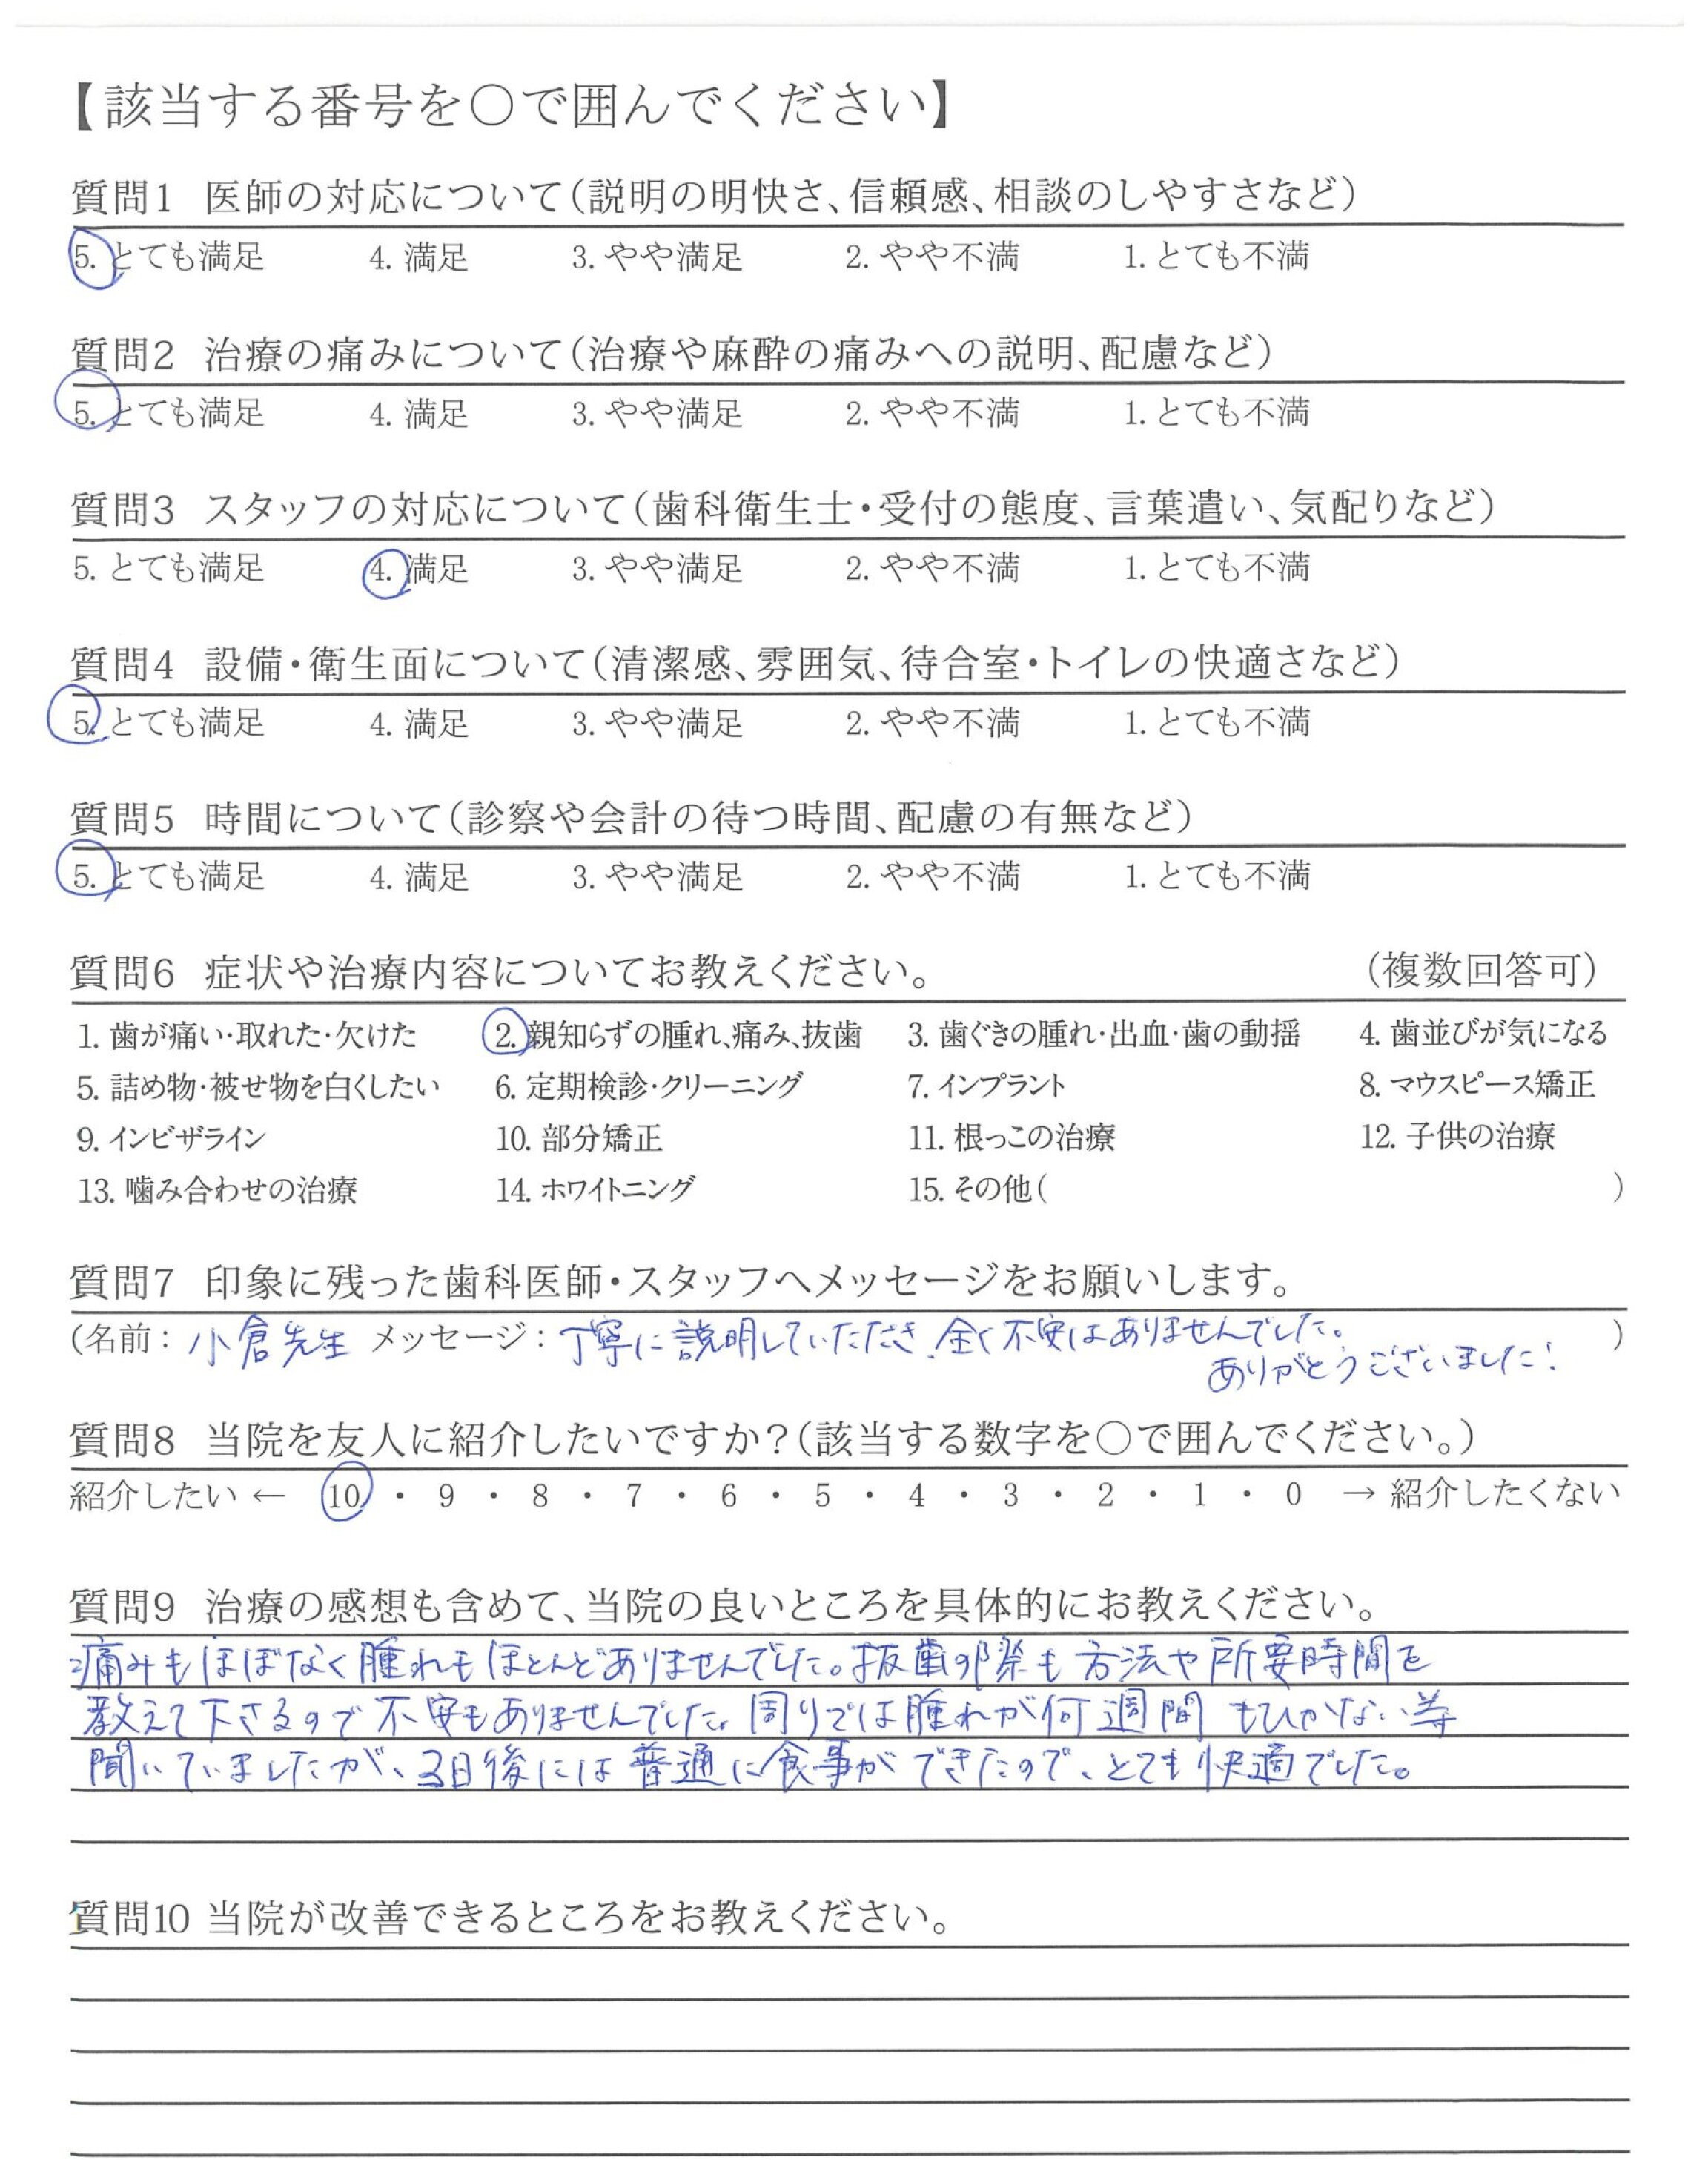 【該当する番号を○で囲んでください】
質問1 医師の対応について(説明の明快さ、信頼感、相談のしやすさなど)
5. とても満足 4. 満足 3. やや満足 2. やや不満 1. とても不満
質問2 治療の痛みについて(治療や麻酔の痛みへの説明、配慮など)
5. とても満足 4. 満足 3. やや満足 2. やや不満 1. とても不満
質問3 スタッフの対応について(歯科衛生士・受付の態度、言葉遣い、気配りなど)
5. とても満足 4. 満足 3. やや満足 2. やや不満 1. とても不満
質問4 設備・衛生面について(清潔感、雰囲気、待合室・トイレの快適さなど)
5. とても満足 4. 満足 3. やや満足 2. やや不満 1. とても不満
質問5 時間について(診察や会計の待つ時間、配慮の有無など)
5. とても満足 4. 満足 3. やや満足 2. やや不満 1. とても不満
質問6 症状や治療内容についてお教えください。 (複数回答可)
1. 歯が痛い・取れた・欠けた 2. 親知らずの腫れ、痛み、抜歯 3. 歯ぐきの腫れ・出血・歯の動揺 4. 歯並びが気になる
5. 詰め物・被せ物を白くしたい 6. 定期検診・クリーニング 7. インプラント 8. マウスピース矯正
9. インビザライン 10. 部分矯正 11. 根っこの治療 12. 子供の治療
13. 噛み合わせの治療 14. ホワイトニング 15. その他( )
質問7 印象に残った歯科医師・スタッフへメッセージをお願いします。
(名前: 小倉先生 メッセージ: 丁寧に説明していただき、全く不安はありませんでした。 )
ありがとうございました!
質問8 当院を友人に紹介したいですか?(該当する数字を○で囲んでください。)
紹介したい ← 10 ・ 9 ・ 8 ・ 7 ・ 6 ・ 5 ・ 4 ・ 3 ・ 2 ・ 1 ・ 0 → 紹介したくない
質問9 治療の感想も含めて、当院の良いところを具体的にお教えください。
痛みもほぼなく腫れもほとんどありませんでした。抜歯の際も方法や所要時間を
教えて下さるので不安もありませんでした。周りでは腫れが何週間もひかない等
聞いていましたが、3日後には普通に食事ができたので、とても快適でした。
質問10 当院が改善できるところをお教えください。